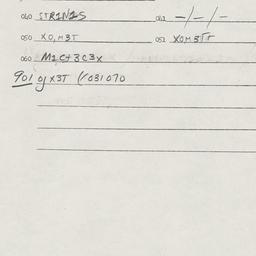 040 STRINGS 042 -/-/-
050 XO, M3T 052 XOM3TT
060 M2C+3C3X
901 oj x3T (/031070